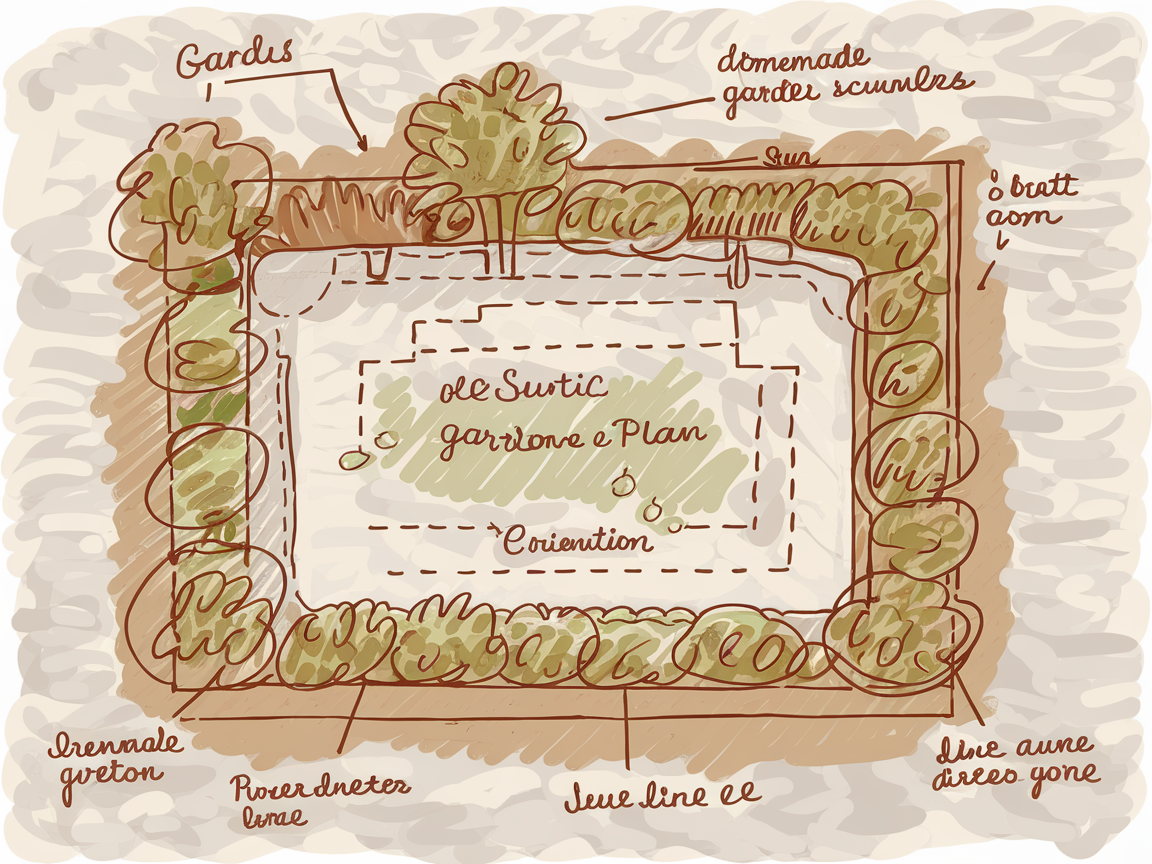 Gardis
domemade
garder scumlzs
Sun
8 bratt
aom
olc Surtic
garvlowe e Plan
Corienution
Irenmale
gveton
Pioverdneters
lurae
Jeue line ee
aune
direeo gone